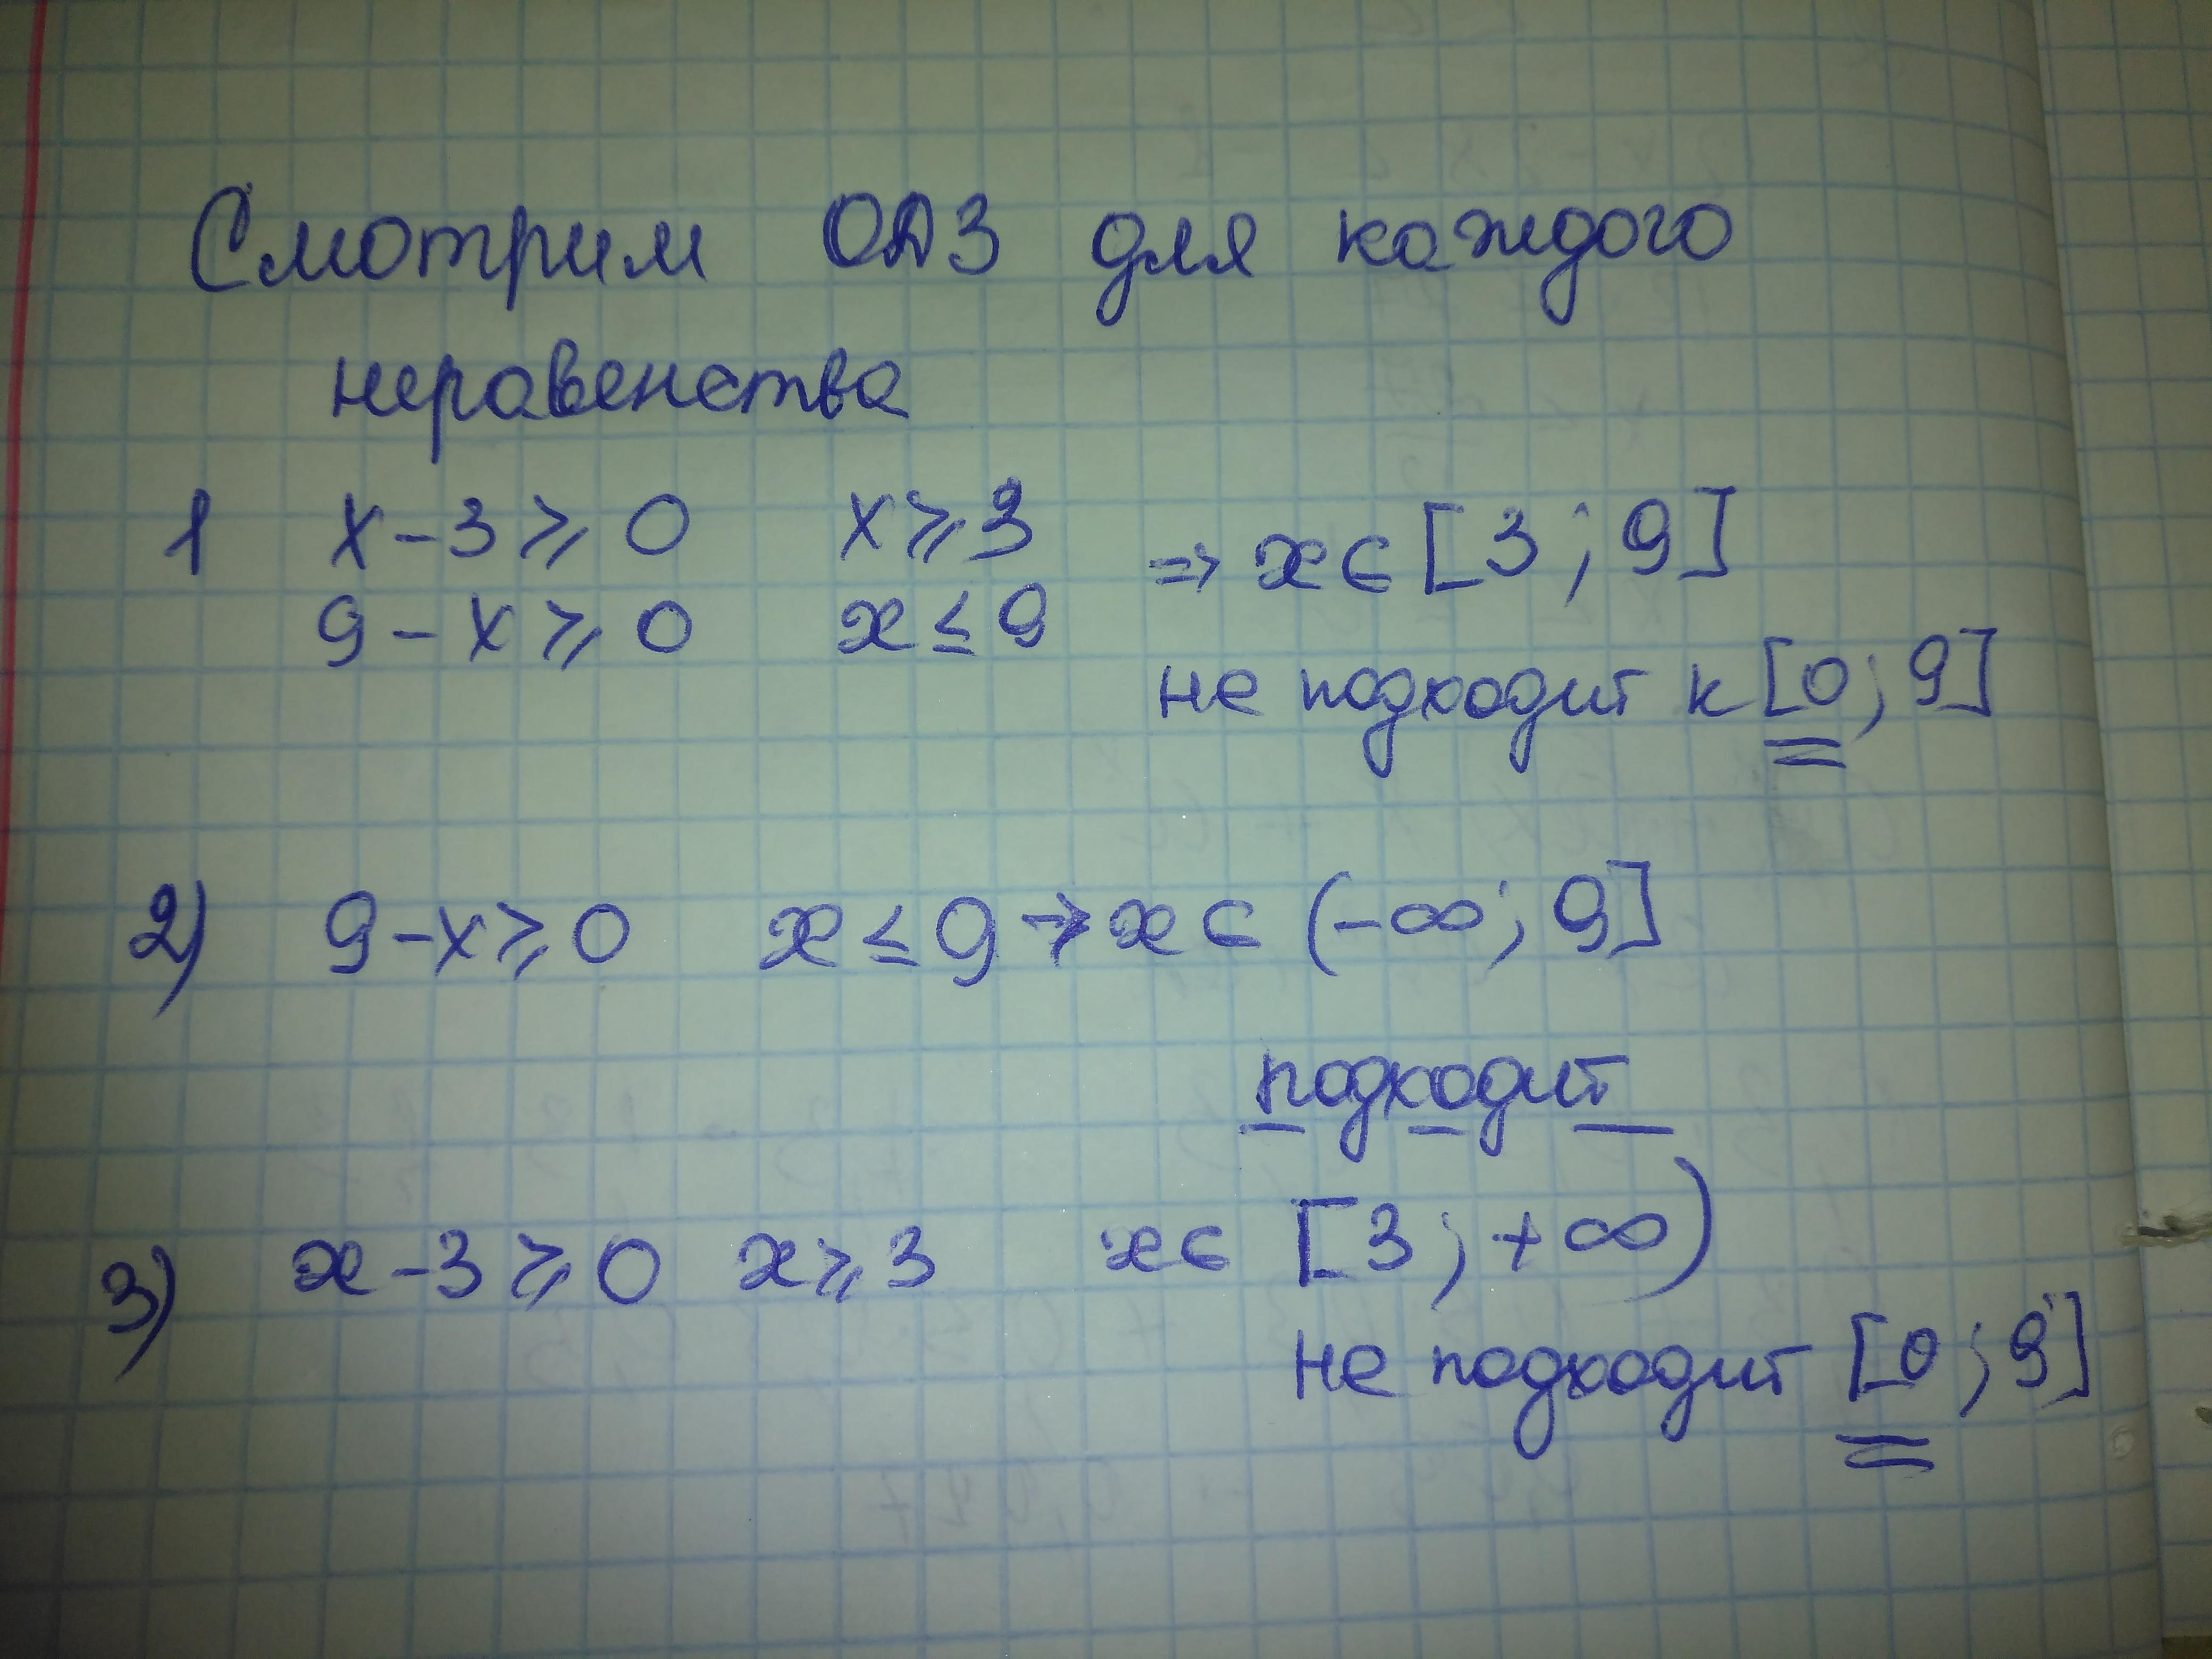 Смотрим ОДЗ для каждого
неравенства
1 x-3⩾0 x⩾3 ⇒ x∈[3;9]
9-x⩾0 x≤9
не подходит к [0;9]
2) 9-x⩾0 x≤9 → x∈(-∞;9]
подходит
3) x-3⩾0 x⩾3 x∈ [3;+∞)
не подходит [0;9]